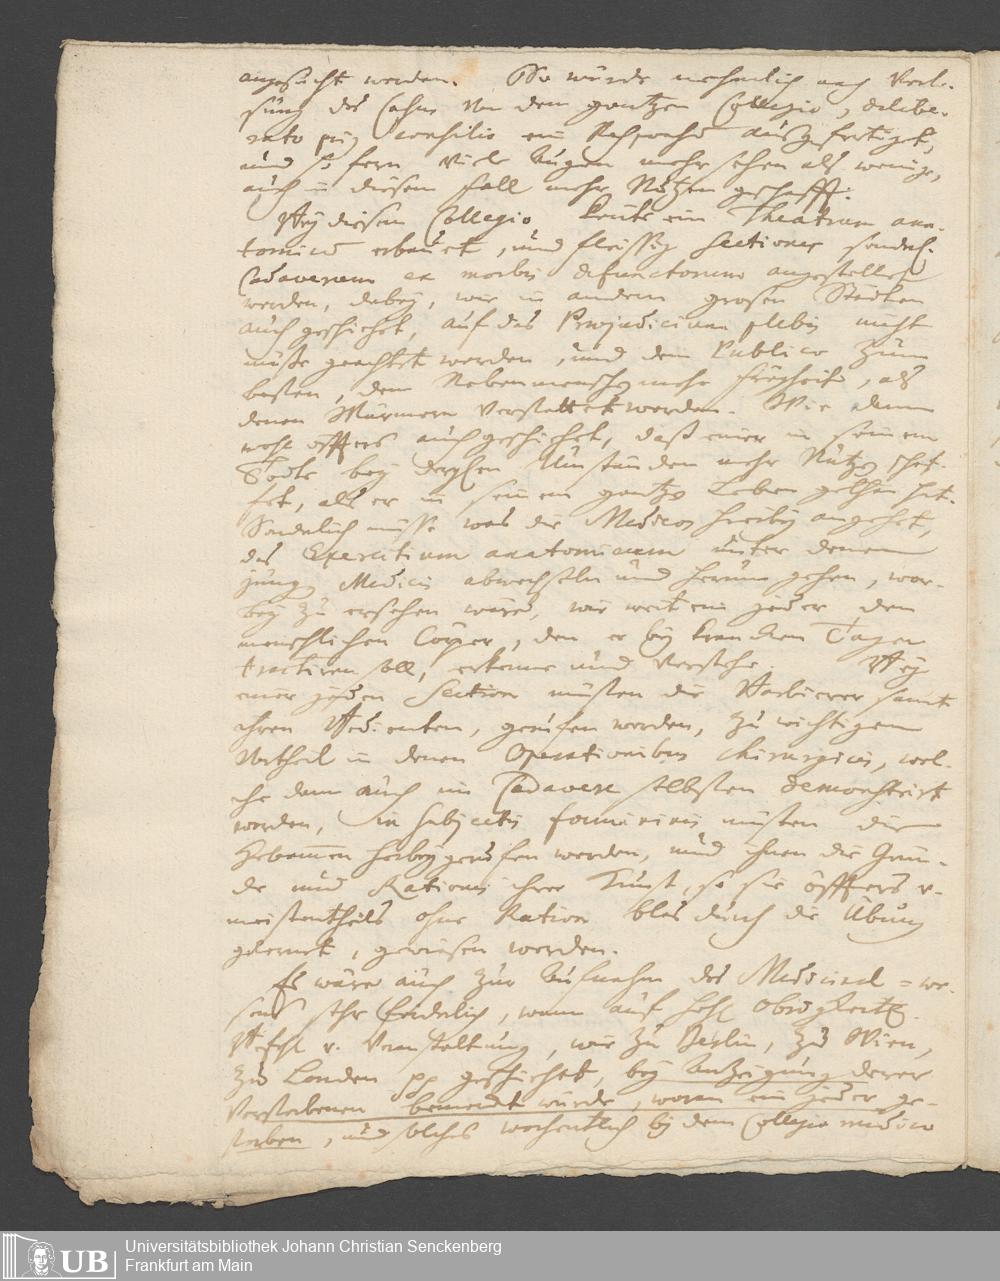 angesucht werden. So würde nehmlich nach Verle-
sung des Casus von dem gantzen Collegio, delibe-
rato prius consilio ein Responsum ausgefertiget,
und so fern viele Augen mehr sehen als wenige,
auch in diesem Fall mehr Nutzen geschafft.
Bey diesem Collegio könte ein Theatrum ana-
tomicum erbauet, und fleissig Sectiones, sonderl.
Cadaverum ex morbis defunctorum angestellet
werden, dabey, wie in andern grosen Städten
auch geschiehet, auf das Praejudicium plebis nicht
müste geachtet werden, und dem Publico zum
besten, dem Nebenmenschen mehr Freyheit, als
denen Würmern verstattet werden. Wie dann
wohl öffters auch geschiehet, daß einer in seinem
Todte bey derglen Umständen mehr Nutzen schaf-
fet, als er in seinem gantzen Leben gethan hat.
Sonderlich müste was die Medicos hiebey angehet,
das Exercitium anatomicum unter denen
jungen Medicis abwechseln und herum gehen, wor-
bey zu ersehen wäre, wie weit ein jeder den
menschlichen Cörper, den er bey krancken Tagen
tractiren soll, erkenne und verstehe. Bey
einer jeden Section müsten die Barbierer samt
ihren Bedienten, geruffen werden, zu wichtigem
Vortheil in denen Operationibus chirurgicis, wel-
che dann auch im Cadavere selbsten demonstrirt
werden, in subjectis foemininis müsten die
Hebammen herbeygeruffen werden, und ihnen die Grün-
de und Rationes ihrer Kunst, so sie öffters v.
meistentheils ohne Ration blos durch die Übung
gelernet, gewiesen werden.
Es wäre auch zur Aufnahm des Medicinal=we-
sens sehr förderlich, wann auf hohe Obrigkeitl.
Befehl v. Veranstaltung, wie zu Berlin, zu Wien,
zu Londen pp geschiehet, bey Anzeigung derer
Verstorbenen bemerckt würde, woran ein jeder ge-
storben, und solches wochentlich bey dem Collegio medico
Universitätsbibliothek Johann Christian Senckenberg
Frankfurt am Main
UB